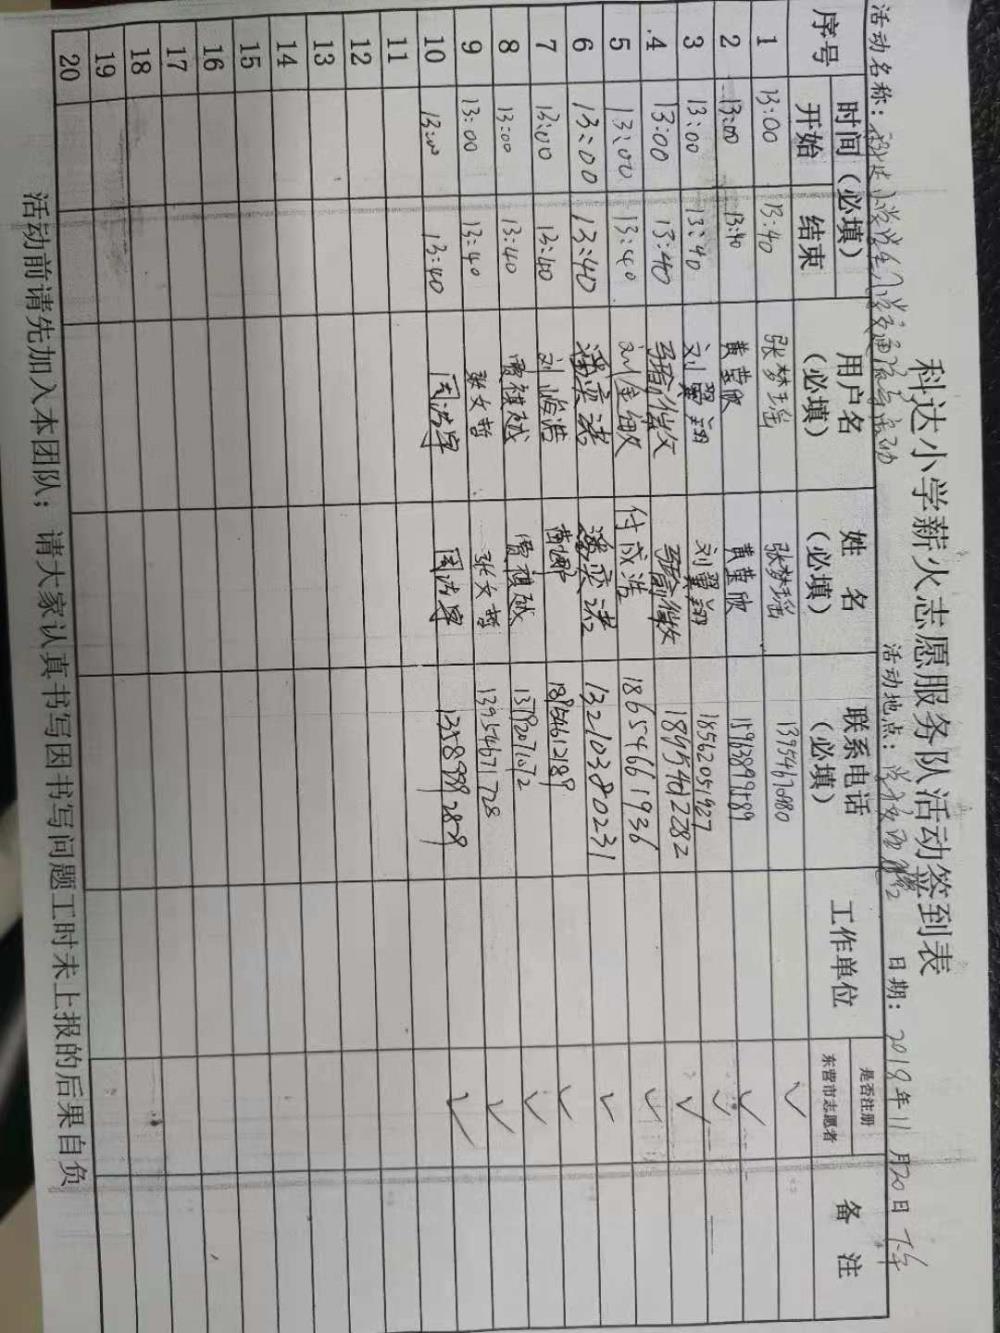 科达小学薪火志愿服务队活动签到表
活动名称：科达小学学生入学交通 活动地点：学校 日期：2019年11月20日 下午
序号 时间（必填） 用户名（必填） 姓名（必填） 联系电话（必填） 工作单位 是否注册东营市志愿者 备注
开始 结束
1 13:00 13:40 张梦瑶 张梦瑶 ✓
2 13:00 13:40 黄莹欣 黄莹欣 15963899589 ✓
3 13:00 13:40 刘翼翔 刘翼翔 18562051927 ✓
4 13:00 13:40 18954602282 ✓
5 13:00 13:40 付成浩 18654661936 ✓
6 13:00 13:40 潘奕诺 潘奕诺 13210380231 ✓
7 13:00 13:40 刘峻浩 18954612189 ✓
8 13:00 13:40 贾祺越 贾祺越 ✓
9 13:00 13:40 张文哲 张文哲 13954671728 ✓
10 13:00 13:40 周浩宇 周浩宇 ✓
11
12
13
14
15
16
17
18
19
20
活动前请先加入本团队；请大家认真书写因书写问题工时未上报的后果自负